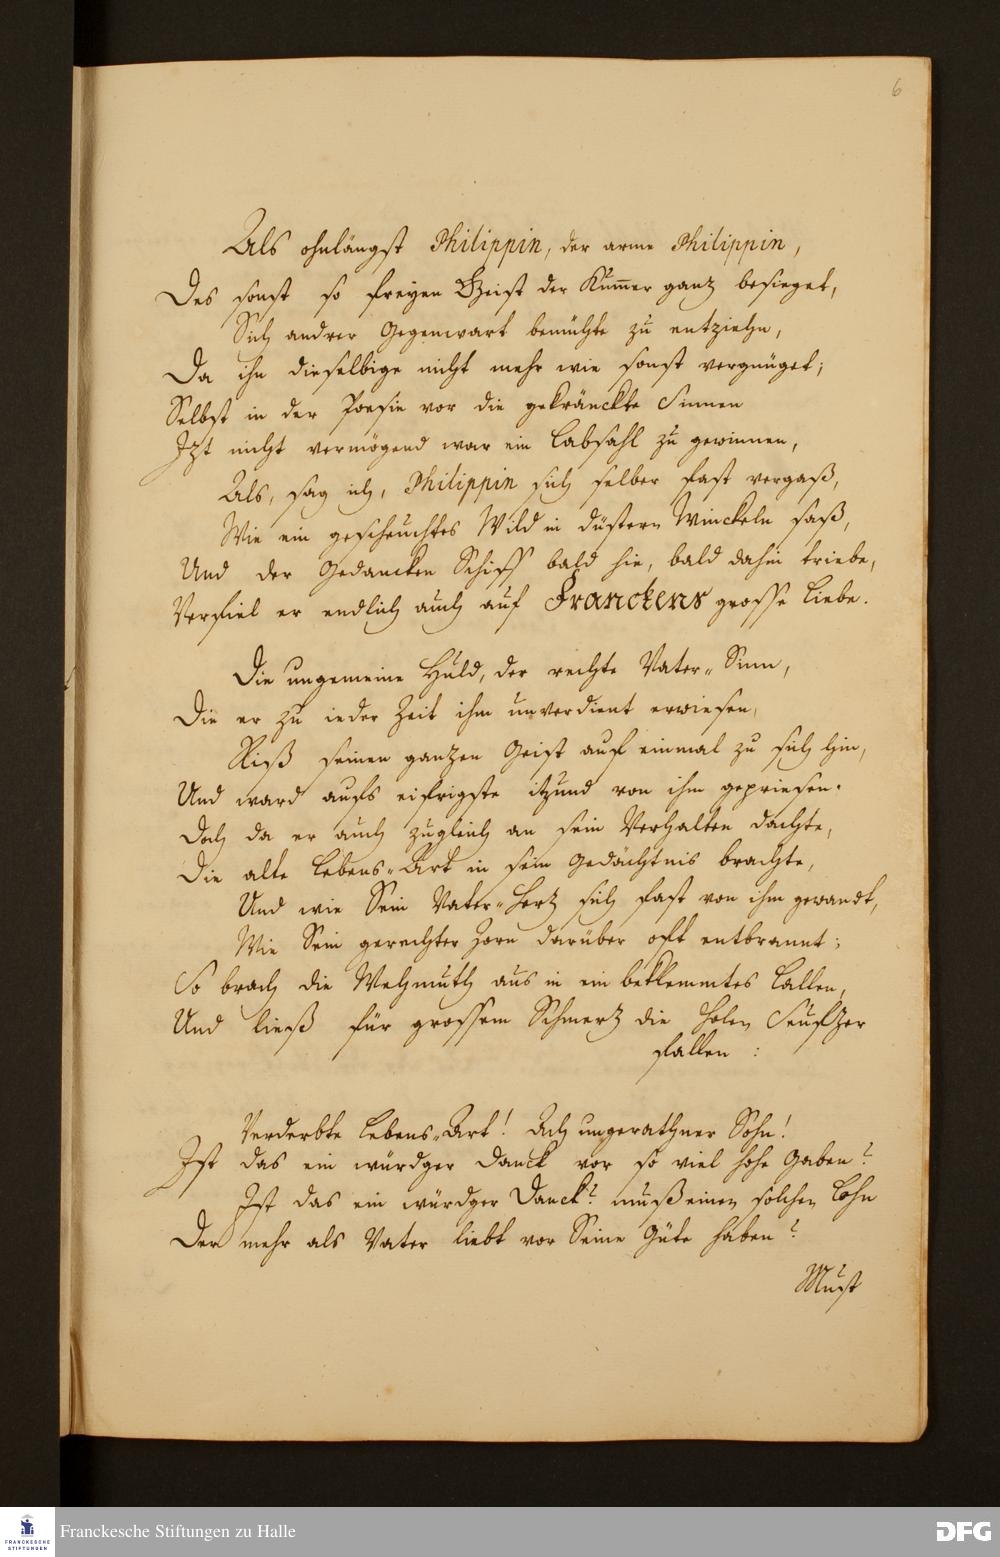 6
Als ohnlängst Philippin, der arme Philippin,
Des sonst so freyen Geist der Kum̄er ganz besieget,
Sich andrer Gegenwart bemühte zu entziehn,
Da ihn dieselbige nicht mehr wie sonst vergnüget;
Selbst in der Poesie vor die gekränckte Sinnen
Izt nicht vermögend war ein Labsahl zu gewinnen,
Als, sag ich, Philippin sich selber fast vergaß,
Wie ein gescheuchtes Wild in düstern Winckeln saß,
Und der Gedancken Schiff bald hie, bald dahin triebe,
Verfiel er endlich auch auf Franckens grosse Liebe.
Die ungemeine Huld, der rechte Vater-Sinn,
Die er zu ieder Zeit ihm unverdient erwiesen,
Riß seinen ganzen Geist auf einmal zu sich hin,
Und ward aufs eifrigste itzund von ihm gepriesen.
Doch da er auch zugleich an sein Verhalten dachte,
Die alte Lebens-Art in sein Gedächtnis brachte,
Und wie Sein Vater-Hertz sich fast von ihm gewandt,
Wie Sein gerechter Zorn darüber oft entbrannt;
So brach die Wehmuth aus in ein beklemmtes Lallen,
Und ließ für grossem Schmertz die holen Seufzer
fallen:
Verderbte Lebens-Art! Ach ungerathner Sohn!
Ist das ein würdger Danck vor so viel hohe Gaben?
Ist das ein würdger Danck? muß einen solchen Lohn
Der mehr als Vater liebt vor Seine Güte haben?
Must
Franckesche Stiftungen zu Halle
FRANCKESCHE
STIFTUNGEN
DFG